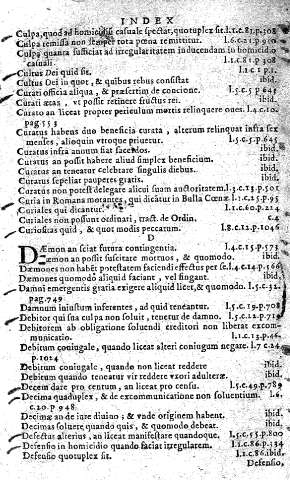 INDEX
Culpa, quod ad homicidiū casuale spectat, quotuplex sit. l.1.c.81.p.108
Culpa remissa non semper tota pœna remittitur. l.6.c.21.p.910
Culpa quanta sufficiat ad irregularitatem inducendam in homicidio
casuali. l.1.c.81.p.108
Cultus Dei quid sit. l.2.c.1.p.1.
Cultus Dei in quot, & quibus rebus consistat ibid.
Curati officia aliqua, & præsertim de concione. l.5.c.5.p.645
Curati ætas, vt possit retinere fructus rei. ibid.
Curato an liceat propter periculum mortis relinquere oues. l.4.c.10.
pag 553
Curatus habens duo beneficia curata, alterum relinquat infra sex
menses, alioquin vtroque priuetur. l.5.c.5.p.645
Curatus infra annum fiat sacerdos. ibid.
Curatus an possit habere aliud simplex beneficium. ibid.
Curatus an teneatur celebrare singulis diebus. ibid.
Curatus sepeliat pauperes gratis. ibid.
Curatus non potest delegare alicui suam auctoritatem. l.3.c.13.p.501
Curia in Romana morantes, qui dicātur in Bulla Cœnæ. l.1.c.25.p.95
Curiales qui dicantur. l.1.c.60.p.214
Curiales non possunt ordinari, tract. de Ordin. c.4
Curiositas quid, & quot modis peccatum. l.8.c.12.p.1046
D
DÆmon an sciat futura contingentia. l.4.c.15.p.573
Dæmon an possit suscitare mortuos, & quomodo. ibid.
Dæmones non habēt potestatem faciendi effectus per se. l.4.c.14.p.566
Dæmones quomodo aliquid faciant, vel fingant. ibid.
Damni emergentis gratia exigere aliquid licet, & quomodo. l.5.c.32.
pag.749
Damnum iniustum inferentes, ad quid teneantur. l.5.c.19.p.708
Debitor qui sua culpa non soluit, tenetur de damno. l.5.c.22.p.719
Debitorem ab obligatione soluendi creditori non liberat excom-
municatio. l.1.c.13.p.46.
Debitum coniugale, quando liceat alteri coniugum negare. l.7 c.24.
p.1024
Debitum coniugale, quando non liceat reddere ibid.
Debitum quando teneatur vir reddere vxori adulteræ. ibid.
Decem dare pro centum, an liceat pro censu. l.5.c.49.p.789
Decima quaduplex, & de excommunicatione non soluentium. l.6.
c.20.p 948
Decimæ an de iure diuino; & vnde originem habent. ibid.
Decimas soluere quando quis, & quomodo debeat. ibid.
Defectus alterius, an liceat manifestare quandoque. l.5.c.55.p.800
Defensio in homicidio quando faciat irregularem. l.1.c.86.p.134
Defensio quotuplex sit. l.1.c.86.ibid.
Defensio,